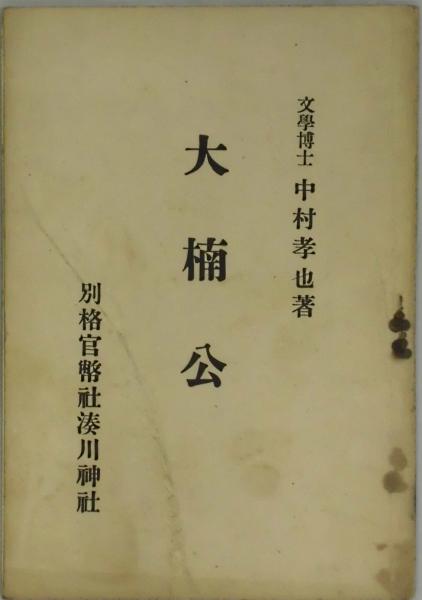 文學博士 中村孝也著
大楠公
別格官幣社湊川神社